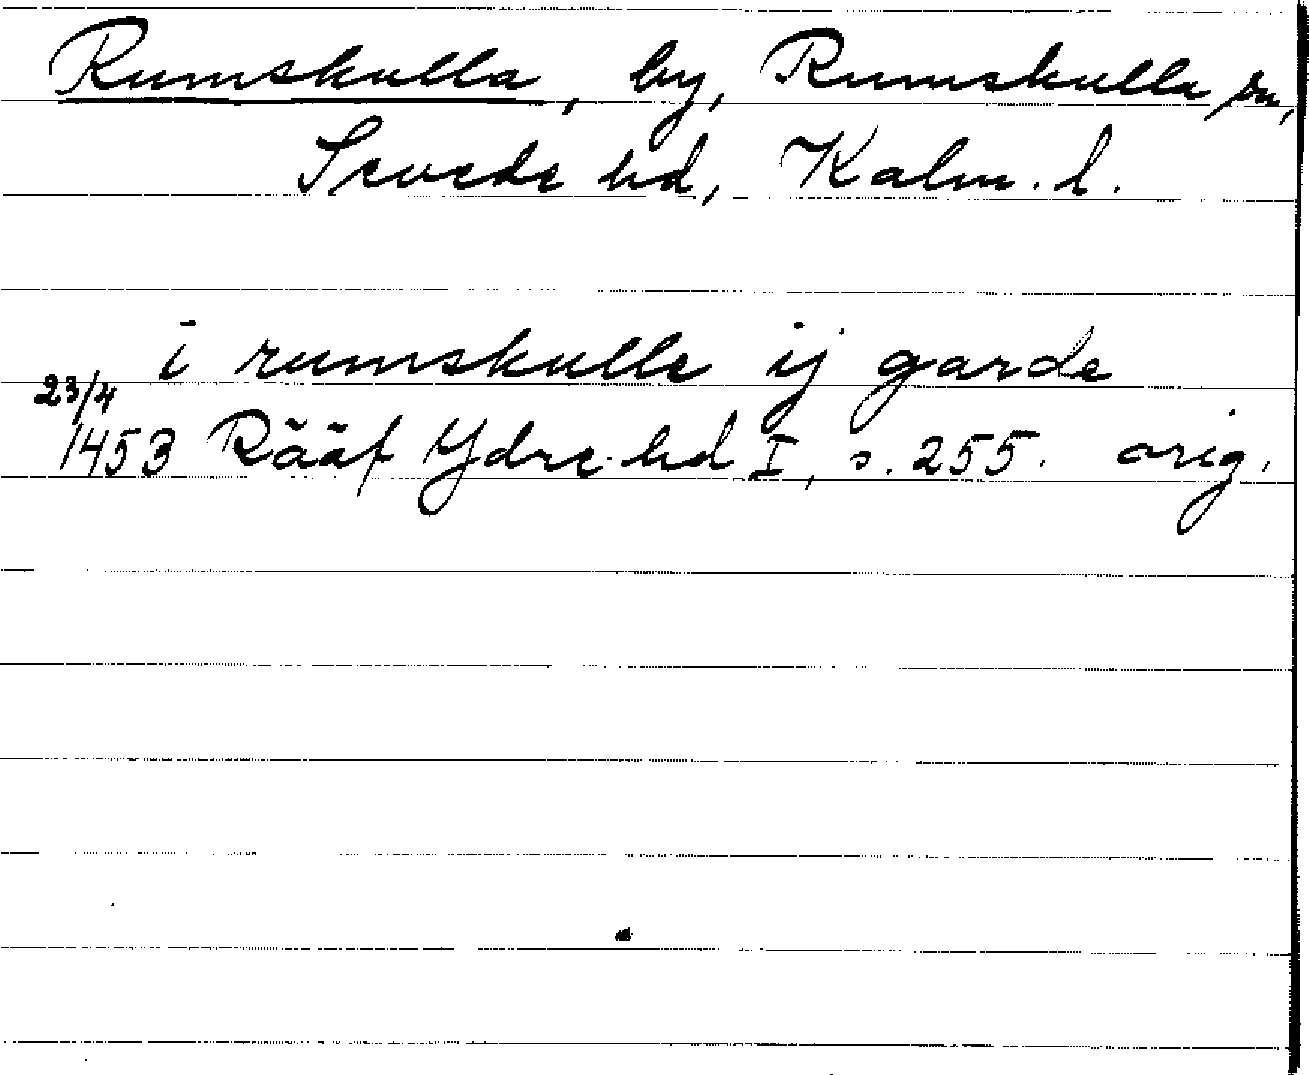 Rumskulla, by, Rumskulla sn,
Sevede hd, Kalm. l.
i rumskulle ij garde
23/4
1453 Rääf Ydre hd I, s. 255. orig.